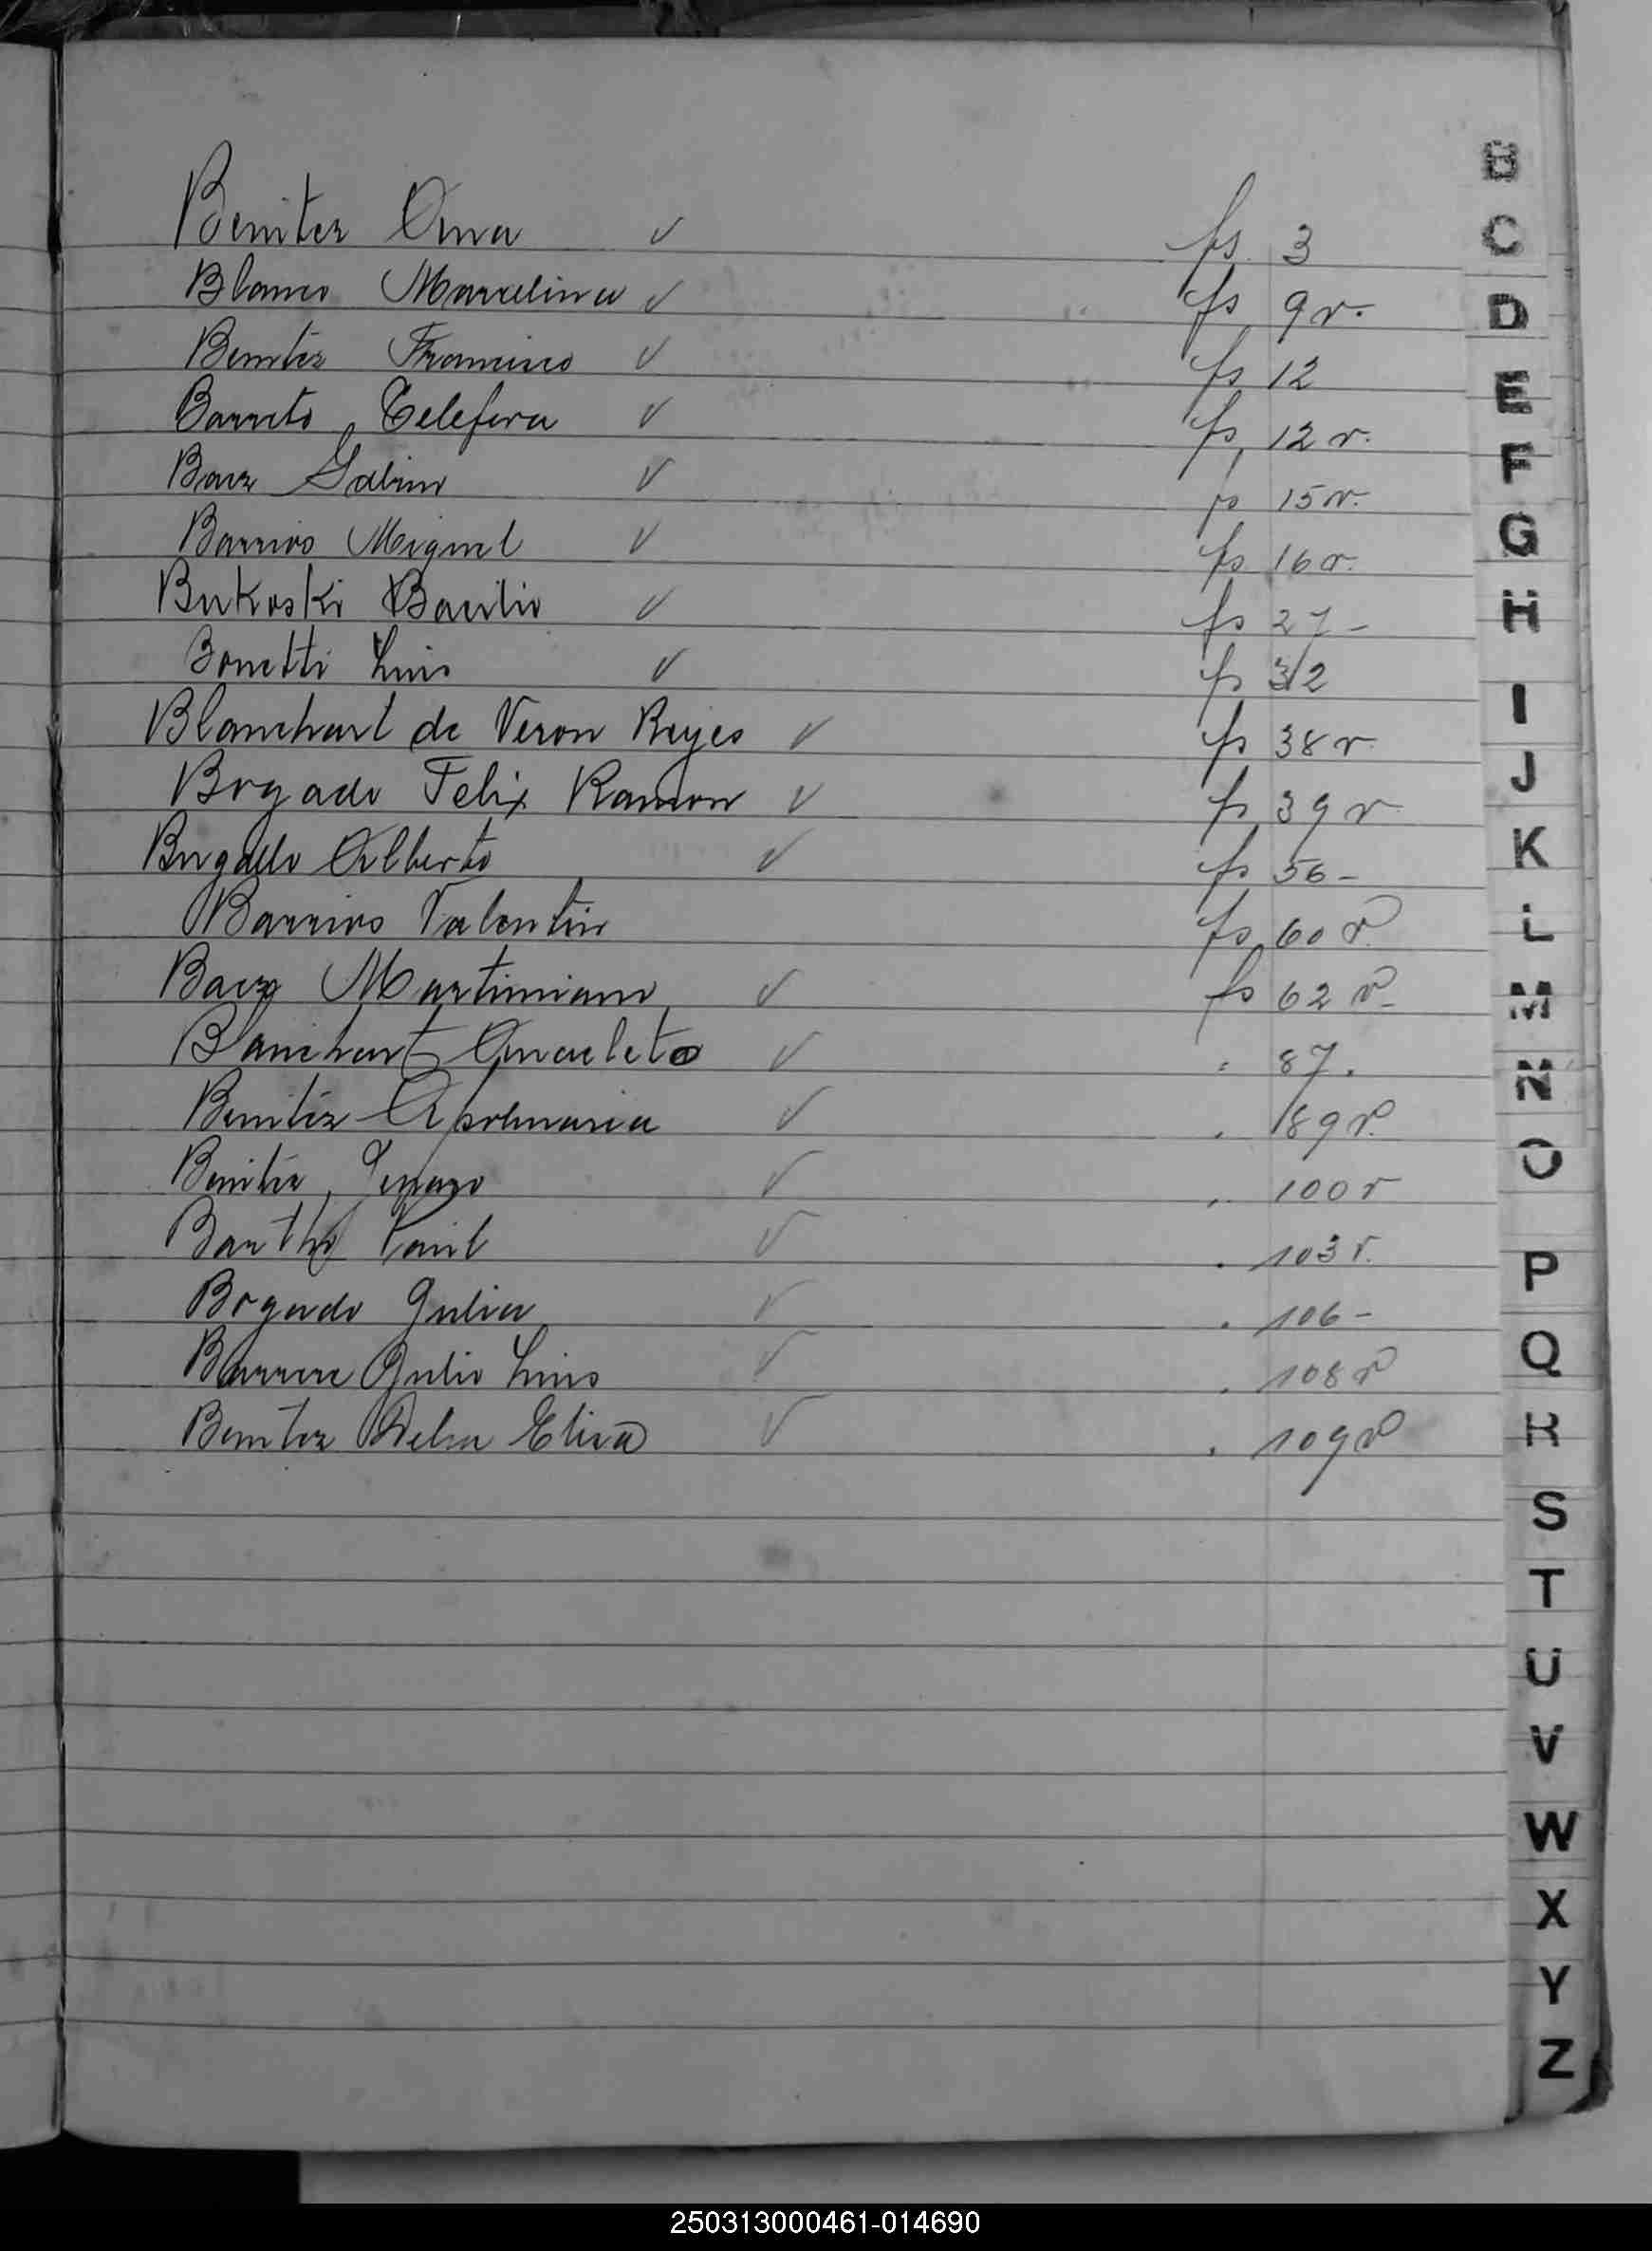 Benitez Ana ✓ fs. 3
Blanco Marcelina ✓ fs 9 v.
Benitez Francisco ✓ fs 12
Barreto Telefora ✓ fs 12 v.
Baez Sabino ✓ fs 15 v.
Barrios Miguel ✓ fs 16 v.
Bukoski Basilio ✓ fs 27 -
Bonetti Luis ✓ fs 32
Blanchart de Veron Reyes ✓ fs 38 v.
Bogado Felix Ramon ✓ fs 39 v
Alberto ✓ fs 56 -
Barrios Valentin fs 60 v.
Baez Martimiano ✓ fs 62 v -
Blanchart Anacleto ✓ " 87.
Benitez Apolinaria ✓ . 89 v.
Benitez, Genaro ✓ " 100 v
Barthe ✓ . 103 v.
Bogado Julia ✓ . 106 -
Barrere Julio Luis ✓ . 108 v
Benitez Delia Elisa ✓ . 109 v
B
C
D
E
F
G
H
I
J
K
L
M
N
O
P
Q
R
S
T
U
V
W
X
Y
Z
250313000461-014690